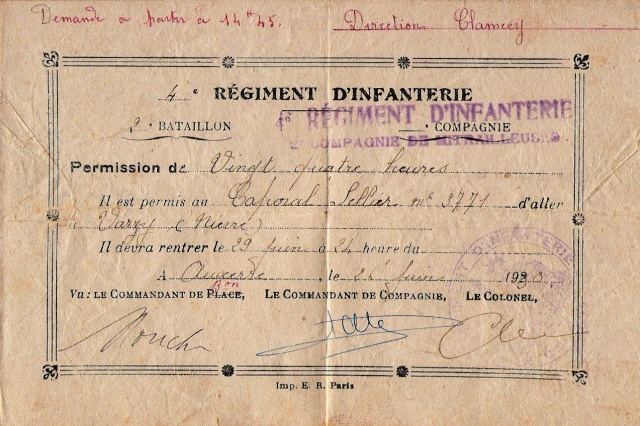 Demande à partir à 14h45. Direction Clamecy
4e RÉGIMENT D'INFANTERIE
4e RÉGIMENT D'INFANTERIE
2e BATAILLON COMPAGNIE
2e COMPAGNIE DE MITRAILLEUSES
Permission de Vingt quatre heures
Il est permis au Caporal Sellier mle 3771 d'aller
à Varzy (Nièvre)
Il devra rentrer le 29 juin à 24 heure du
A Auxerre, le juin 1930
Bon
Vu: LE COMMANDANT DE PLACE, LE COMMANDANT DE COMPAGNIE, LE COLONEL,
D'INFANTERIE
Imp. E. R. Paris